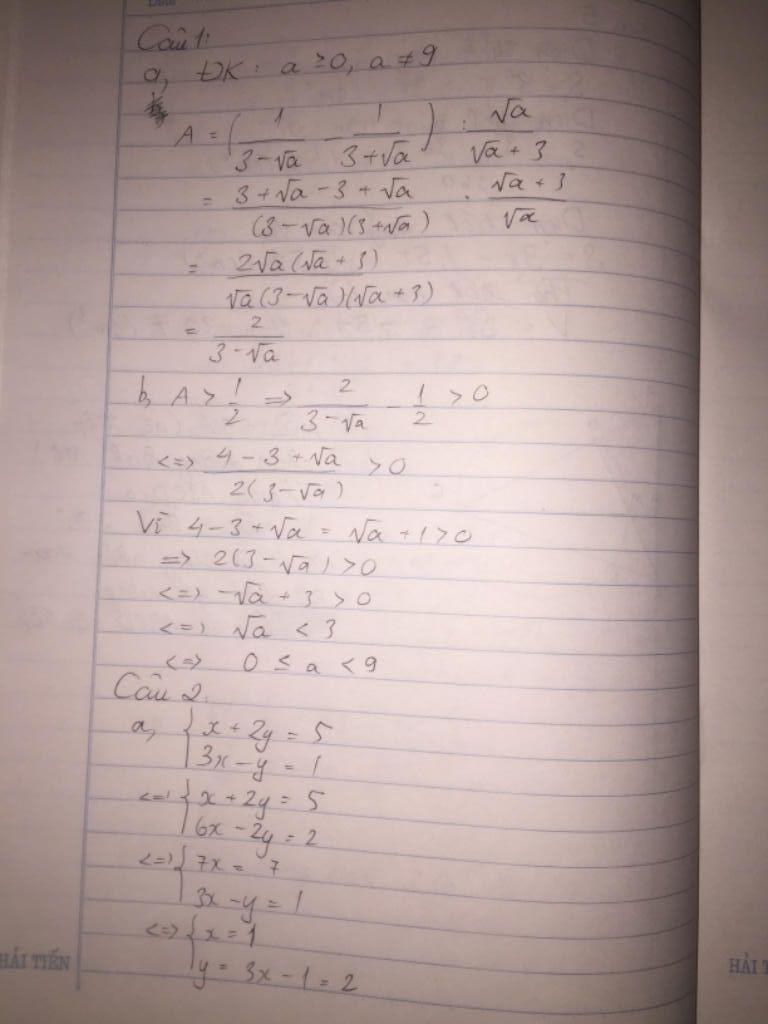 Câu 1:
a, ĐK: a ≥ 0, a ≠ 9
A = (1/(3-√a) - 1/(3+√a)) : √a/(√a+3)
= (3+√a-3+√a)/((3-√a)(3+√a)) . (√a+3)/√a
= 2√a(√a+3)/(√a(3-√a)(√a+3))
= 2/(3-√a)
b, A > 1/2 => 2/(3-√a) - 1/2 > 0
<=> (4-3+√a)/(2(3-√a)) > 0
Vì 4-3+√a = √a+1>0
=> 2(3-√a) >0
<=> -√a + 3 > 0
<=> √a < 3
<=> 0 ≤ a < 9
Câu 2.
a, { x + 2y = 5
3x - y = 1
<=> { x + 2y = 5
6x - 2y = 2
<=> { 7x = 7
3x - y = 1
<=> { x = 1
y = 3x - 1 = 2
HẢI TIẾN
HẢI T